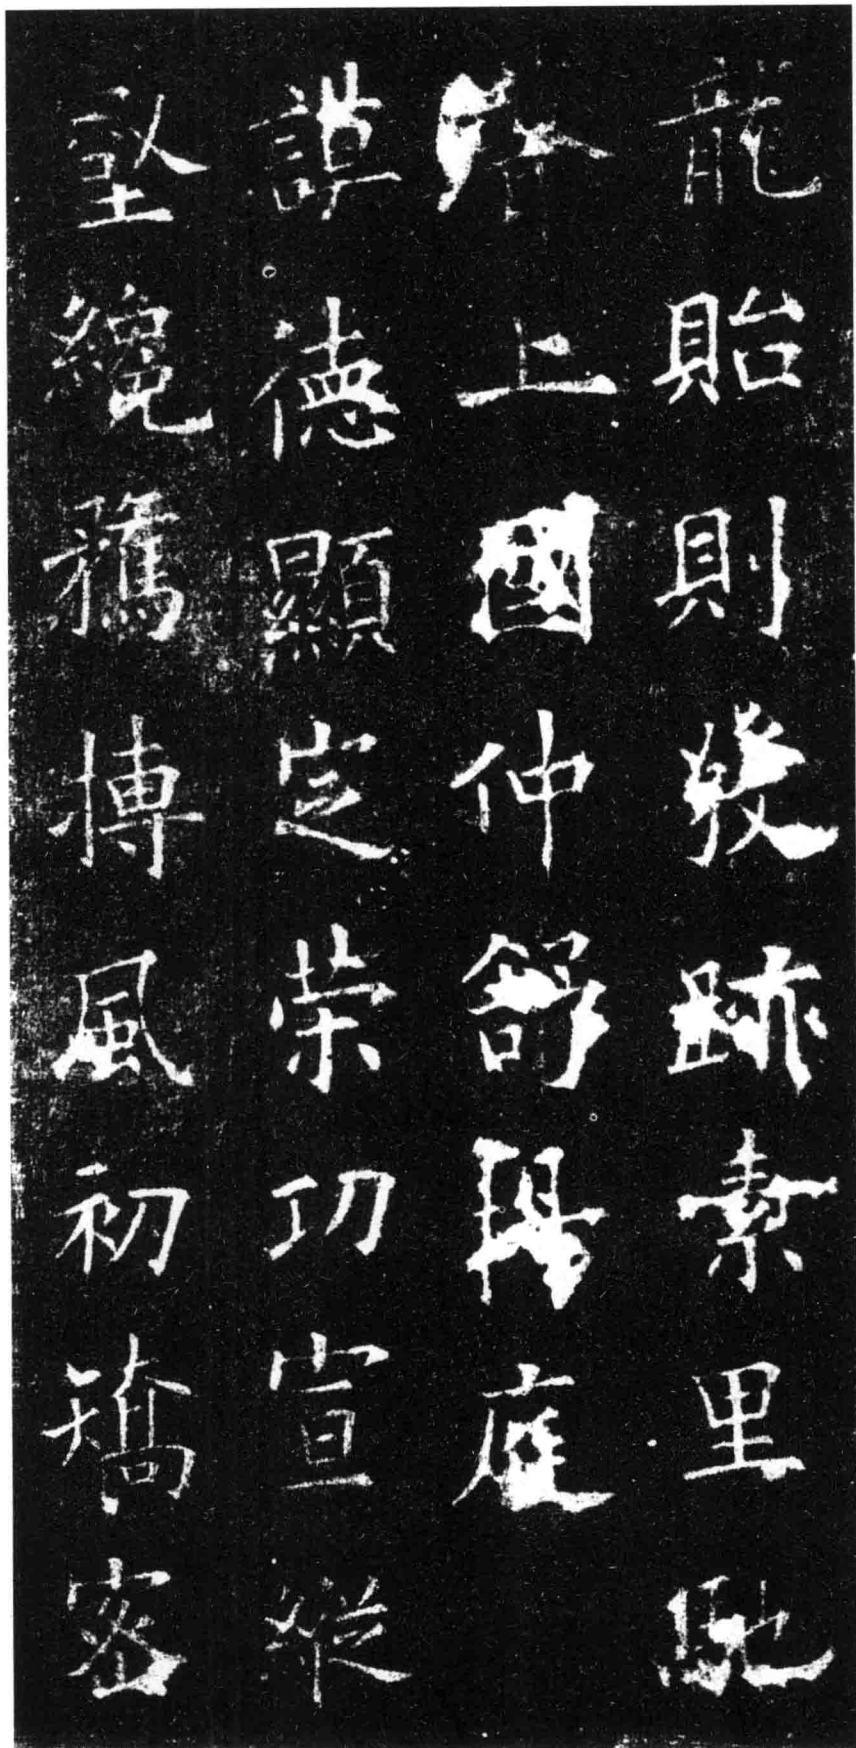 龍貽則發跡素里馳
上國仲舒陽庭
謨德顯定榮功宣縱
壑纔騖搏風初矯密